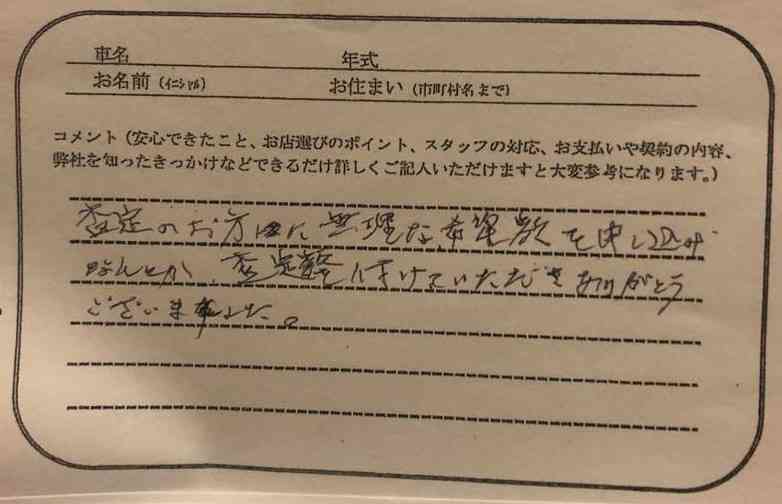 車名 年式
お名前(イニシャル) お住まい(市町村名まで)
コメント(安心できたこと、お店選びのポイント、スタッフの対応、お支払いや契約の内容、
弊社を知ったきっかけなどできるだけ詳しくご記入いただけますと大変参考になります。)
査定のお方に無理な希望額を申し込み
なんとか、査定額に付けていただきありがとう
ございました。